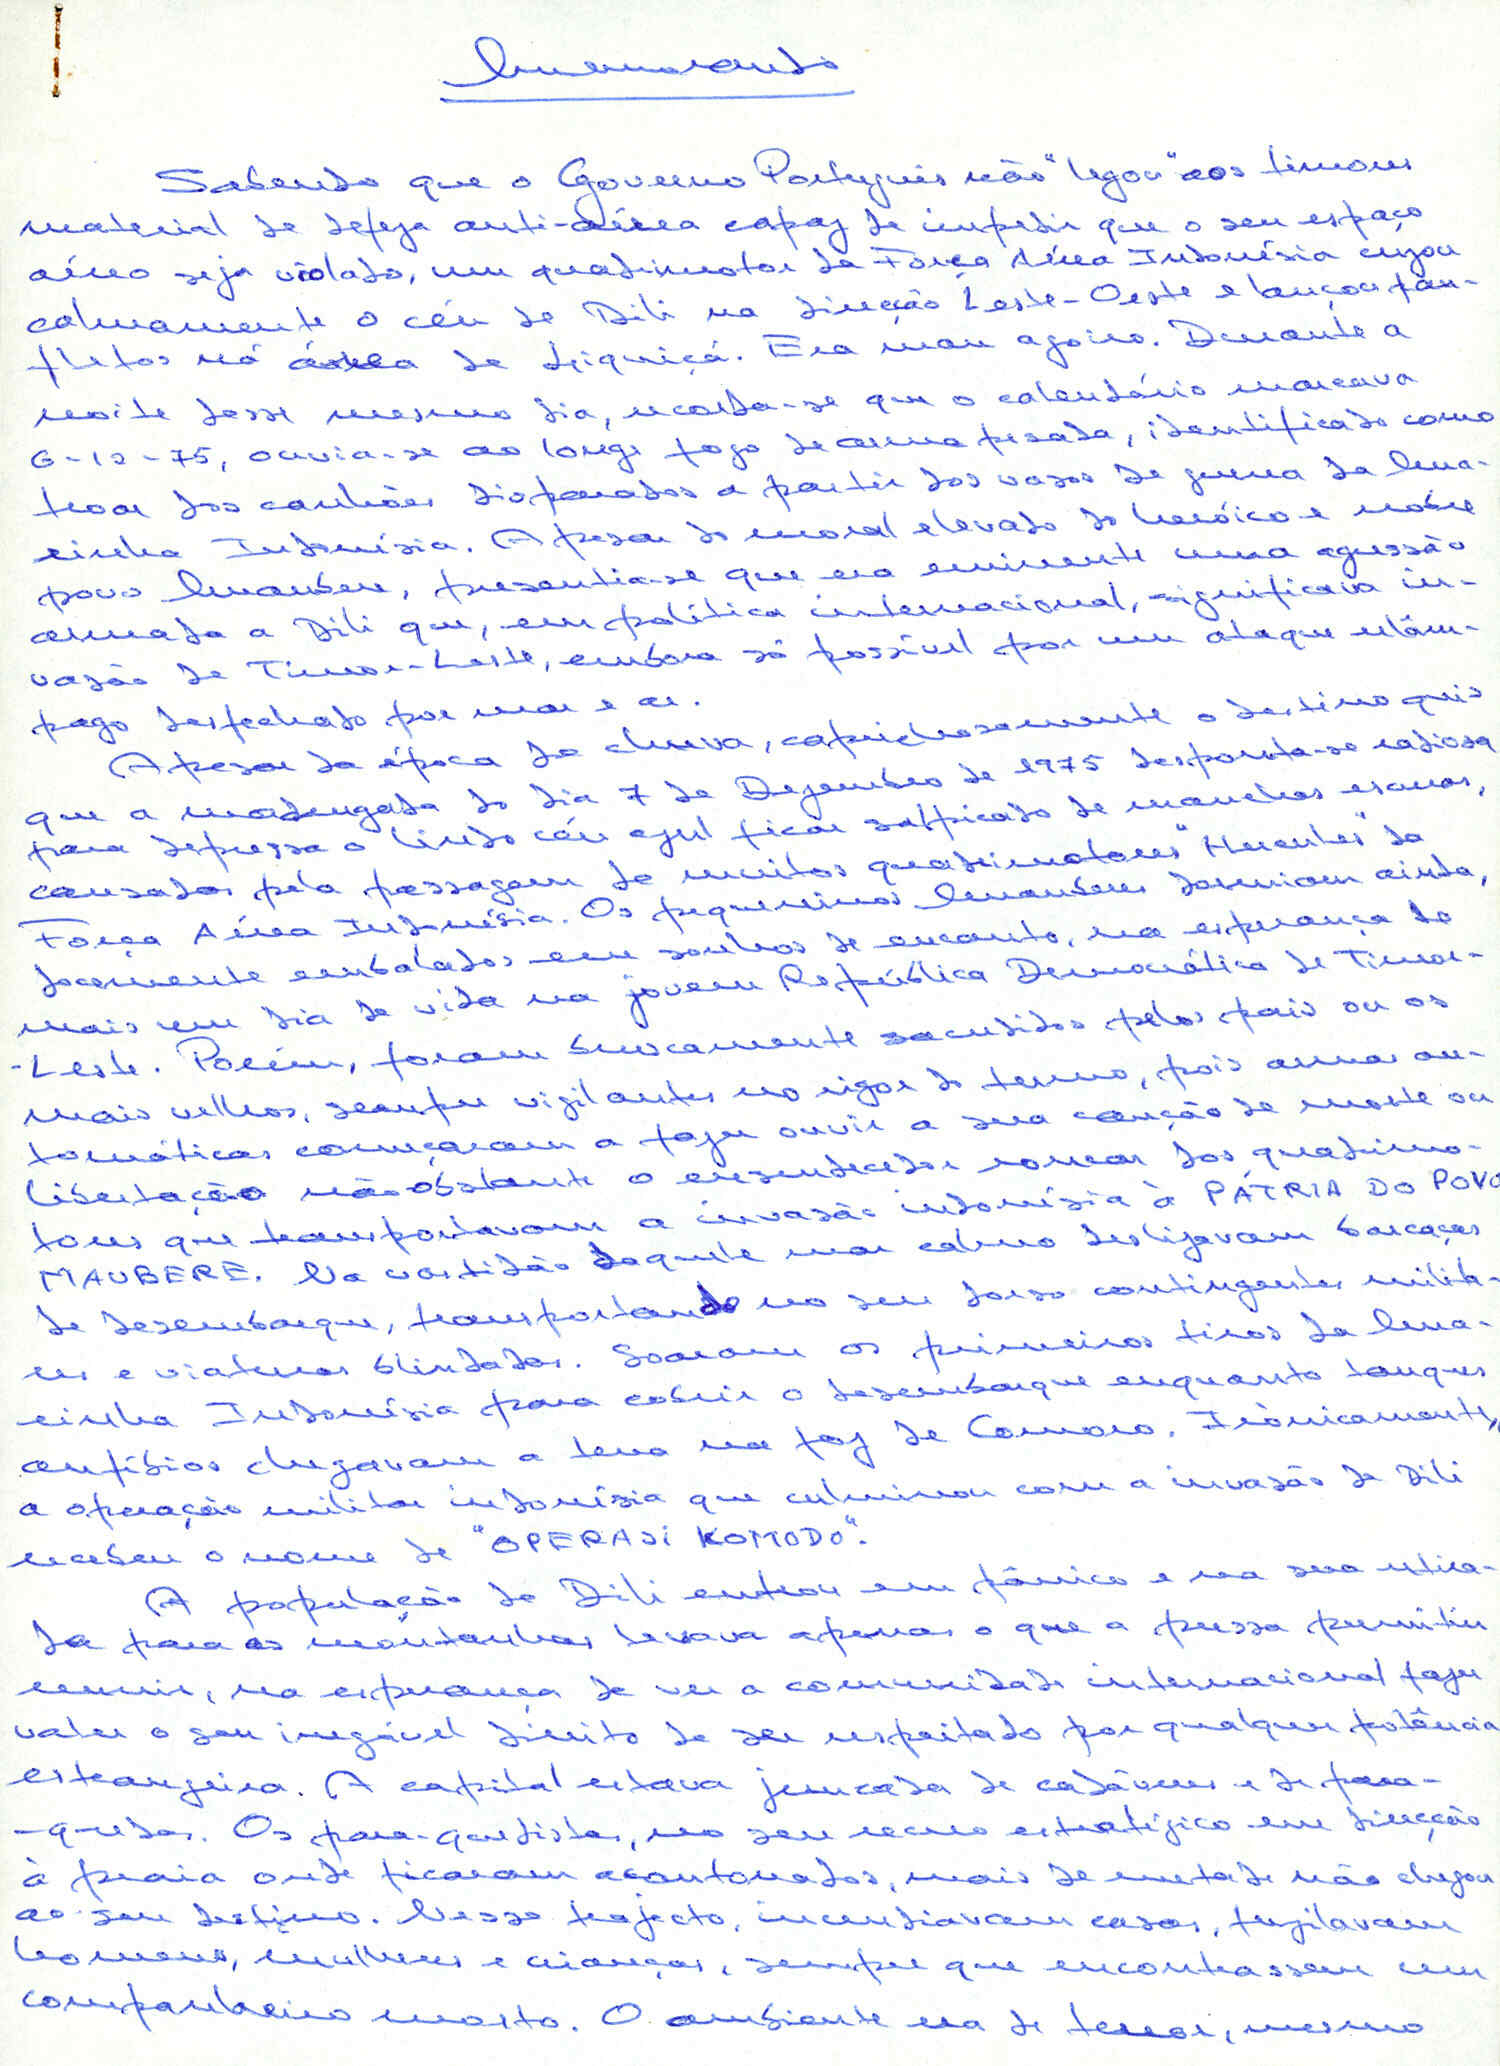 Memorando
Sabendo que o Governo Português não "legou" aos timores
material de defeza anti-aérea capaz de impedir que o seu espaço
aéreo seja violado, um quadrimotor da Força Aérea Indonésia cruzou
calmamente o céu de Dili na direcção Leste-Oeste e lançou pan-
fletos na área de Liquiçá. Era mau agoiro. Durante a
noite desse mesmo dia, recorda-se que o calendário marcava
6-12-75, ouvia-se ao longe fogo de arma pesada, identificado como
troar dos canhões disparados a partir dos vasos de guerra da Ma-
rinha Indonésia. Apesar do moral elevado do heróico e nobre
povo Maubere, pressentia-se que era eminente uma agressão
armada a Dili que, em política internacional, significava in-
vasão de Timor-Leste, embora só possível por um ataque relâm-
pago desfechado por mar e ar.
Apesar da época da chuva, caprichosamente o destino quis
que a madrugada do dia 7 de Dezembro de 1975 desponta-se radiosa
para depressa o lindo céu azul ficar salpicado de manchas escuras,
causadas pela passagem de muitos quadrimotores "Hercules" da
Força Aérea Indonésia. Os pequeninos Mauberes dormiam ainda,
docemente embalados em sonhos de encanto, na esperança de
mais um dia de vida na jovem República Democrática de Timor-
-Leste. Porém, foram bruscamente sacudidos pelos pais ou os
mais velhos, sempre vigilantes no rigor do termo, pois armas au-
tomáticas começaram a fazer ouvir a sua canção de morte ou
libertação não obstante o ensurdecedor roncar dos quadrimo-
tores que transportavam a invasão indonésia à PÁTRIA DO POVO
MAUBERE. Na vastidão daquele mar calmo deslizavam barcaças
de desembarque, transportando no seu dorso contingentes milita-
res e viaturas blindadas. Soaram os primeiros tiros da Ma-
rinha Indonésia para cobrir o desembarque enquanto tanques
anfíbios chegavam a terra na foz de Comoro. Irònicamente,
a operação militar indonésia que culminou com a invasão de Dili
recebeu o nome de "OPERASI KOMODO".
A população de Dili entrou em pânico e na sua retira-
da para as montanhas levava apenas o que a pressa permitiu
reunir, na esperança de ver a comunidade internacional fazer
valer o seu inegável direito de ser respeitado por qualquer potência
estrangeira. A capital estava juncada de cadáveres e de para-
-quedas. Os para-quedistas, no seu recuo estratégico em direcção
à praia onde ficaram acantonados, mais de metade não chegou
ao seu destino. Nesse trajecto, incendiavam casas, fuzilavam
homens, mulheres e crianças, sempre que encontrassem um
companheiro morto. O ambiente era de terror, mesmo